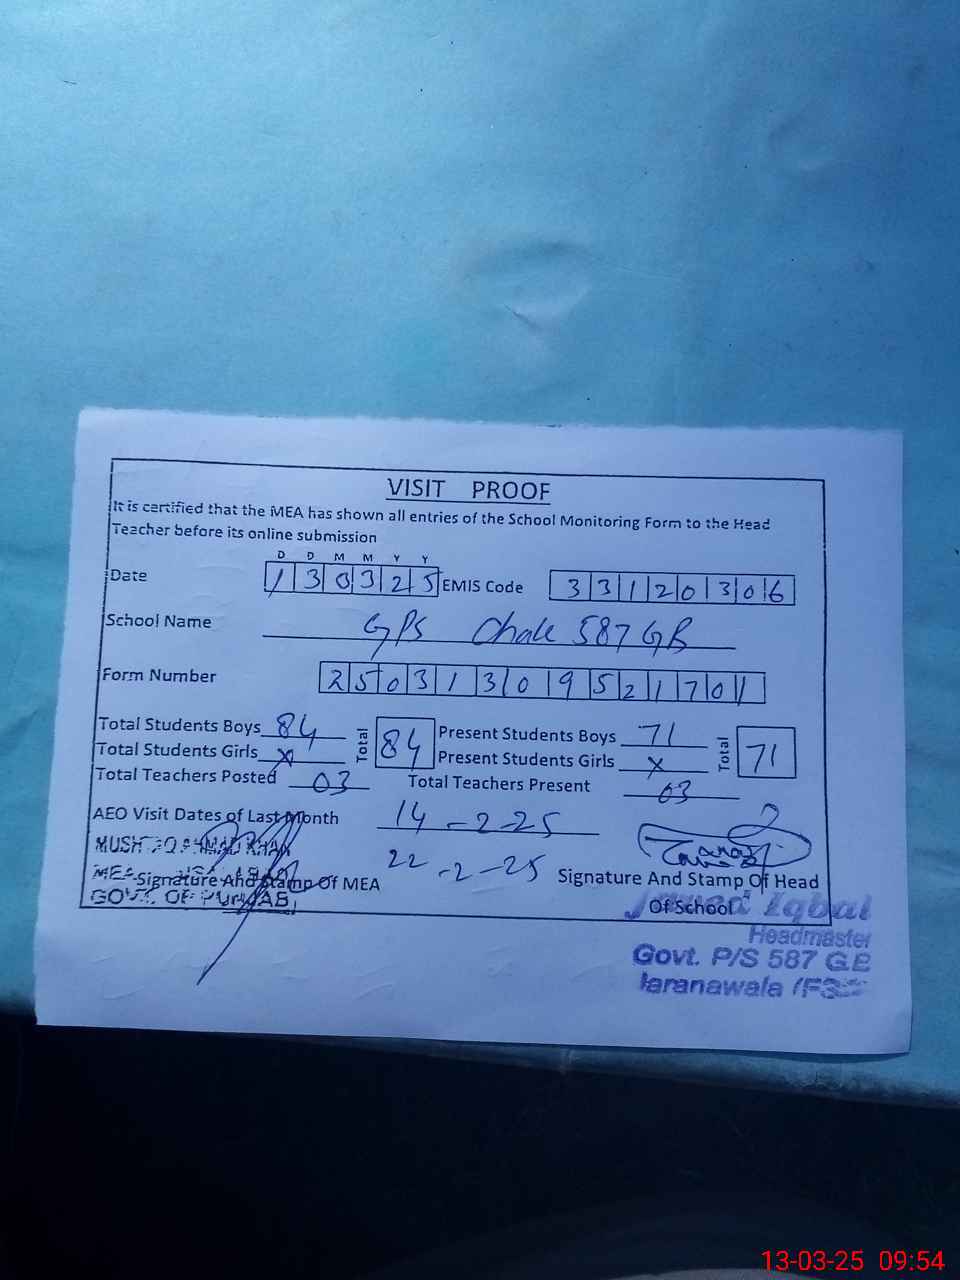 VISIT PROOF
It is certified that the MEA has shown all entries of the School Monitoring Form to the Head
Teacher before its online submission
D D M M Y Y
Date 130325 EMIS Code 33120306
School Name GPS Chak 587 GB
Form Number 25031309521701
Total Students Boys 84 Total 84 Present Students Boys 71 Total 71
Total Students Girls x Present Students Girls x
Total Teachers Posted 03 Total Teachers Present 03
AEO Visit Dates of Last Month 14-2-25
22-2-25
MUSHTAQ AHMAD KHAN
MEA
Signature And Stamp Of MEA
GOVT. OF PUNJAB
Signature And Stamp Of Head
Of School
Iqbal
Headmaster
Govt. P/S 587 G.B
Jaranawala
13-03-25 09:54